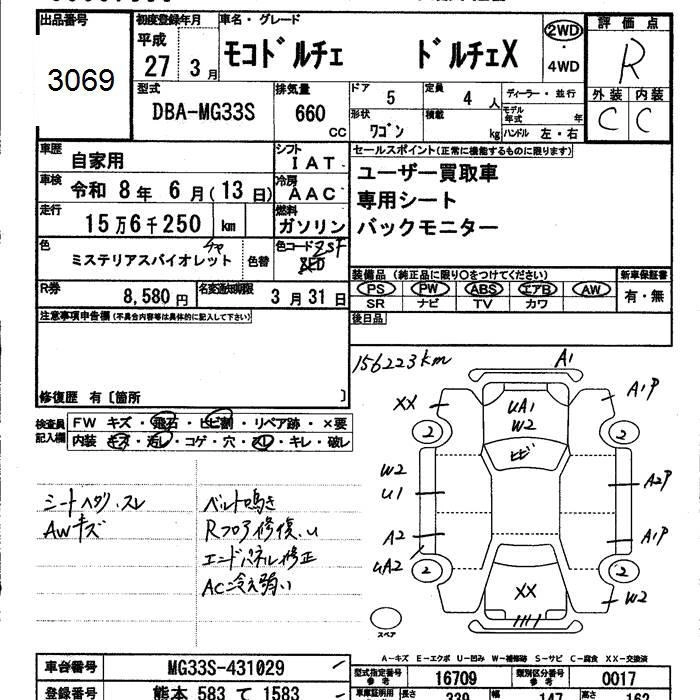 出品番号
3069
初度登録年月
平成
27 3月
車名・グレード
モコドルチェ ドルチェX
2WD
・
4WD
評価点
R
外装 内装
C C
型式
DBA-MG33S
排気量
660
CC
ドア
5
定員
4 人
ディーラー・並行
形状
ワゴン
積載
kg
モデル
年式
年
ハンドル 左・右
車歴
自家用
シフト
IAT
車検
令和 8年 6月(13日)
冷房
AAC
走行
15万6千250 km
燃料
ガソリン
色
ミステリアスバイオレット
色替
色コード
ZSF
R券
8,580円
名変通知期限
3月31日
セールスポイント(正常に機能するものに限ります)
ユーザー買取車
専用シート
バックモニター
装備品 (純正品に限り○をつけてください)
PS PW ABS エアB AW
SR ナビ TV カワ
新車保証書
有・無
後日品
注意事項申告欄(不具合内容等は具体的に記入して下さい)
修復歴 有〔箇所 〕
検査員
記入欄
FW キズ・飛石・ヒビ割・リペア跡・×要
内装 キズ・汚レ・コゲ・穴・スレ・キレ・破レ
シートヘタリ.スレ
AWキズ
ベルト鳴き
Rフロア修復.u
エンドパネル修正
AC冷え弱い
156223km
A1
XX
UA1
W2
A1P
2
2
ヒビ
W2
U1
A2P
A2
A1P
UA2
2
2
XX
W2
スペア
A-キズ E-エクボ U-凹み W-補修跡 S-サビ C-腐食 XX-交換済
車台番号
MG33S-431029
型式指定番号
参考
16709
類別区分番号
参考
0017
登録番号
熊本 583 て 1583
車庫証明用
長さ
339
幅
147
高さ
162